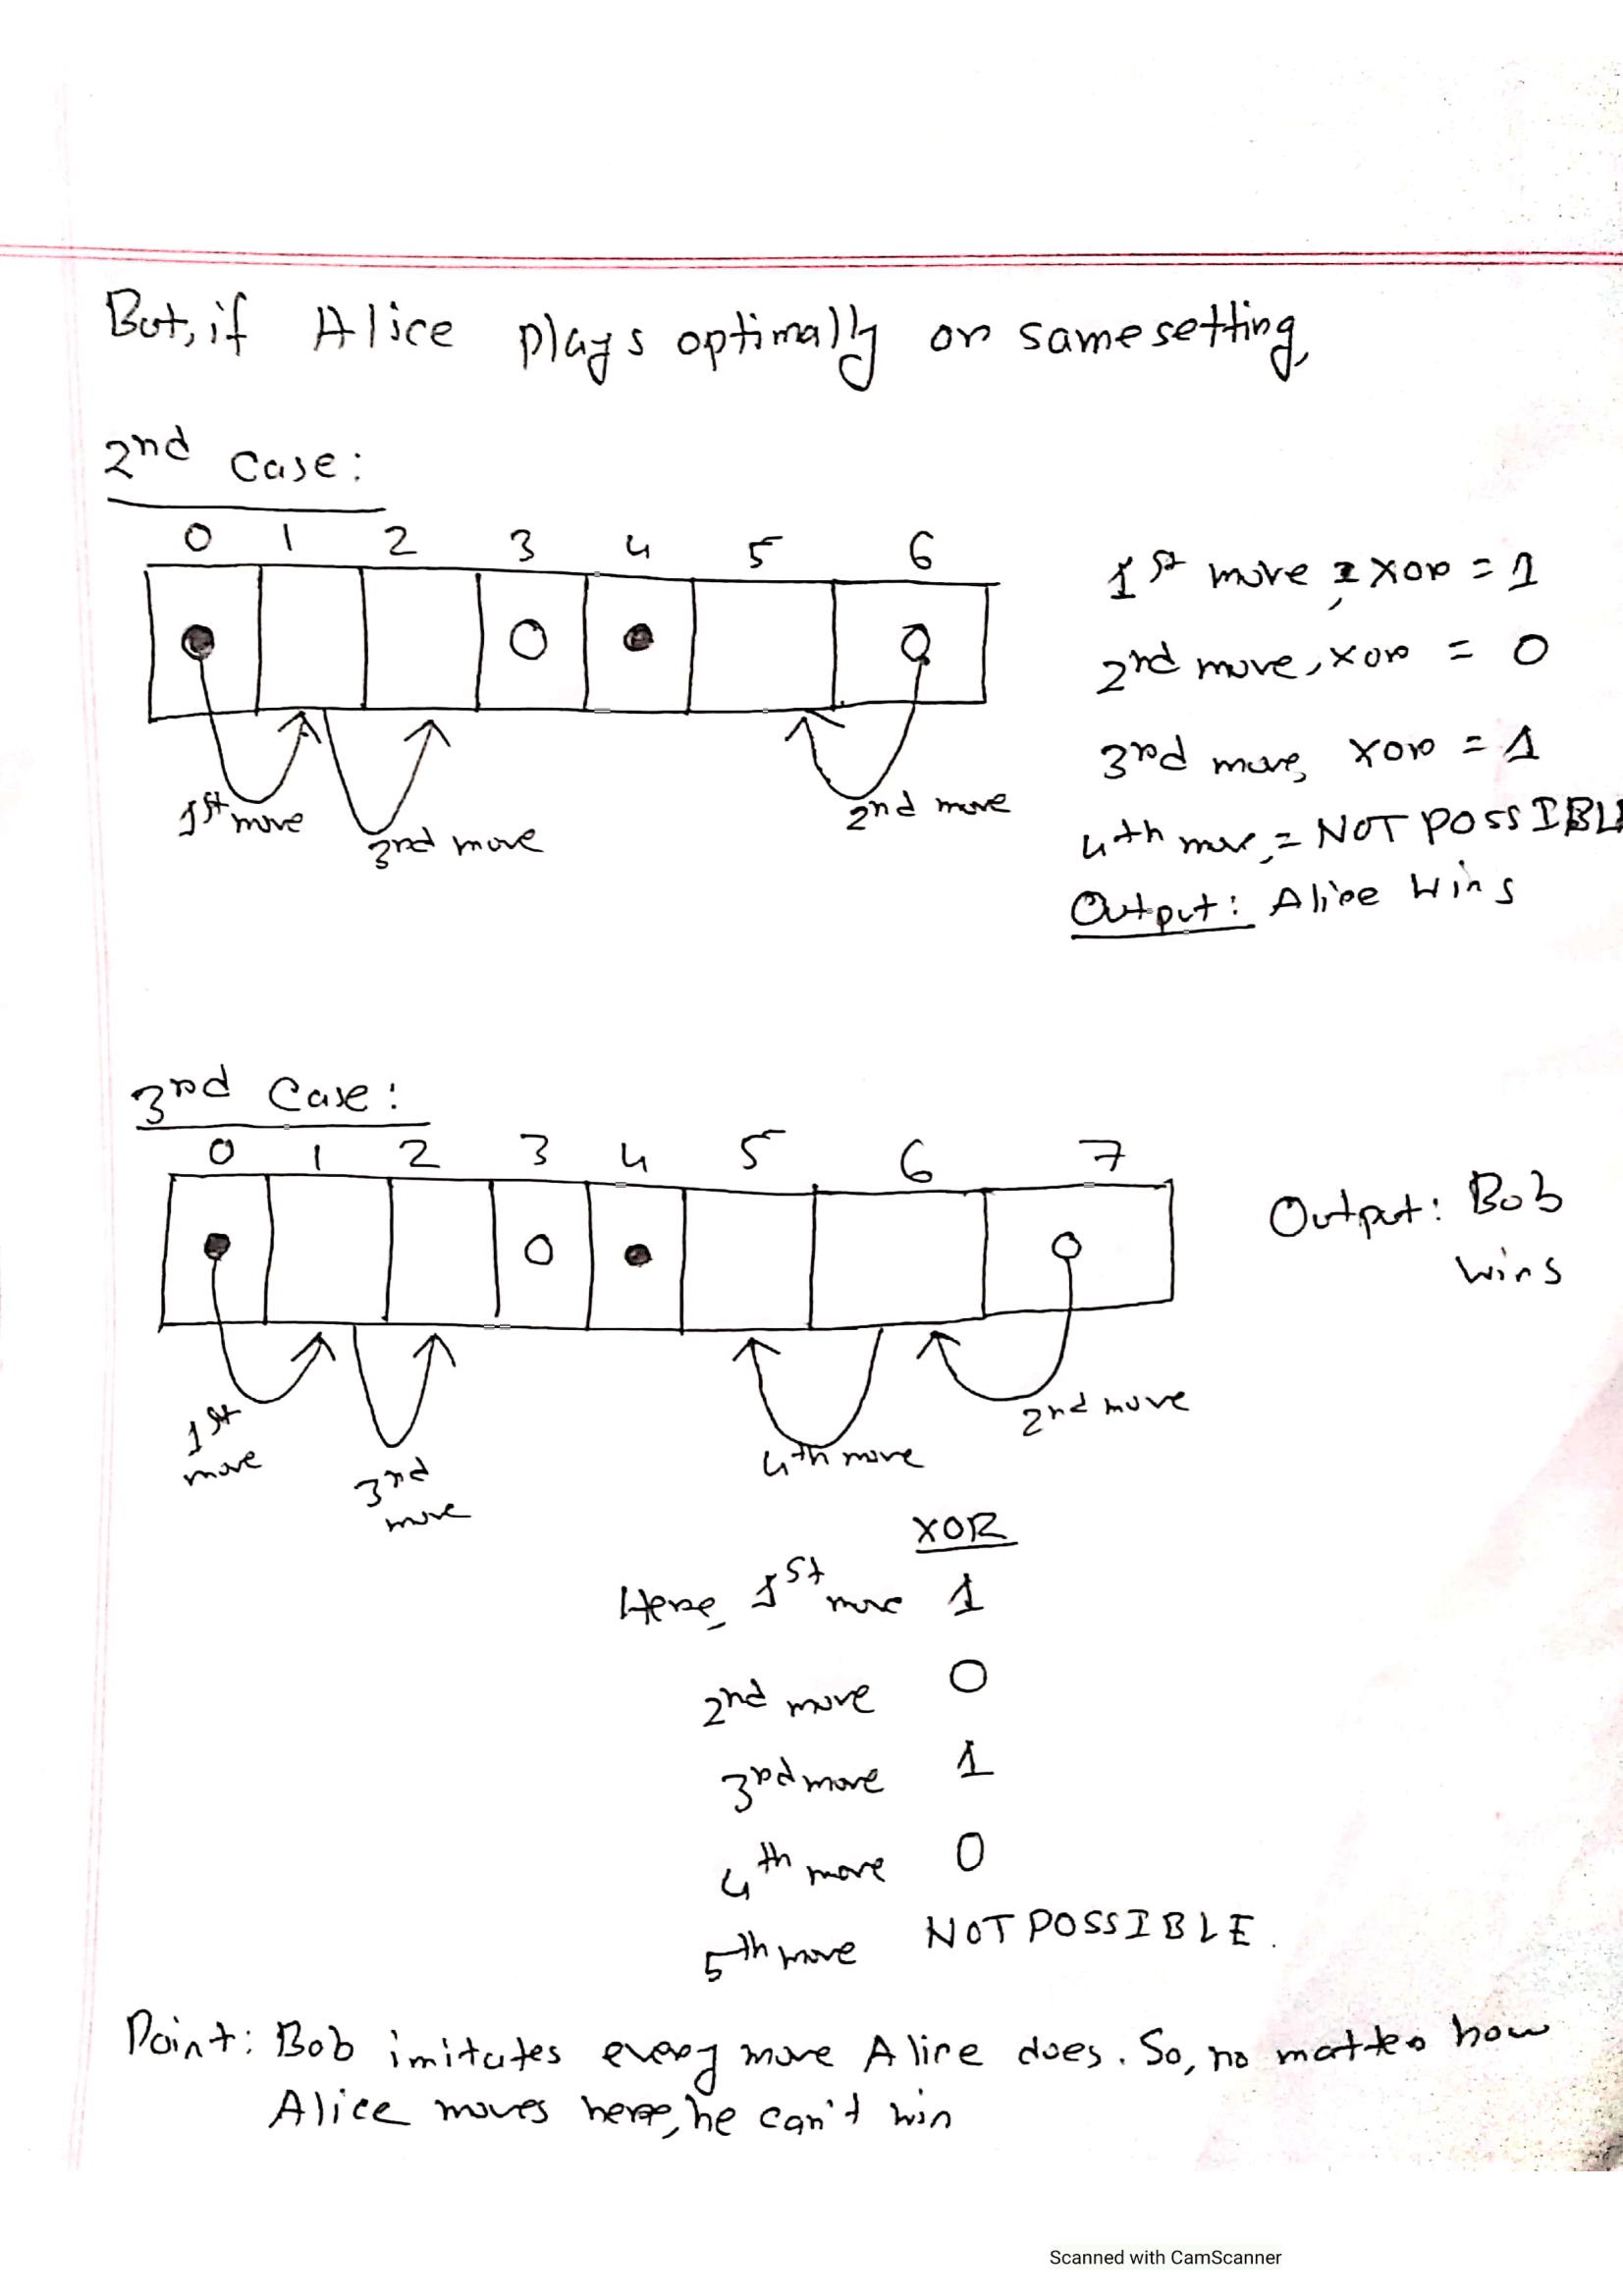 But, if Alice plays optimally on same setting,
2nd Case:
0 1 2 3 4 5 6
1st move, xor = 1
2nd move, xor = 0
3rd move, xor = 1
4th move, = NOT POSSIBLE
Output: Alice Wins
1st move
3rd move
2nd move
3rd Case:
0 1 2 3 4 5 6 7
Output: Bob
wins
1st
move
3rd
move
4th move
2nd move
XOR
Here, 1st move 1
2nd move 0
3rd move 1
4th move 0
5th move NOT POSSIBLE.
Point: Bob imitates every move Alice does. So, no matter how
Alice moves here, he can't win
Scanned with CamScanner